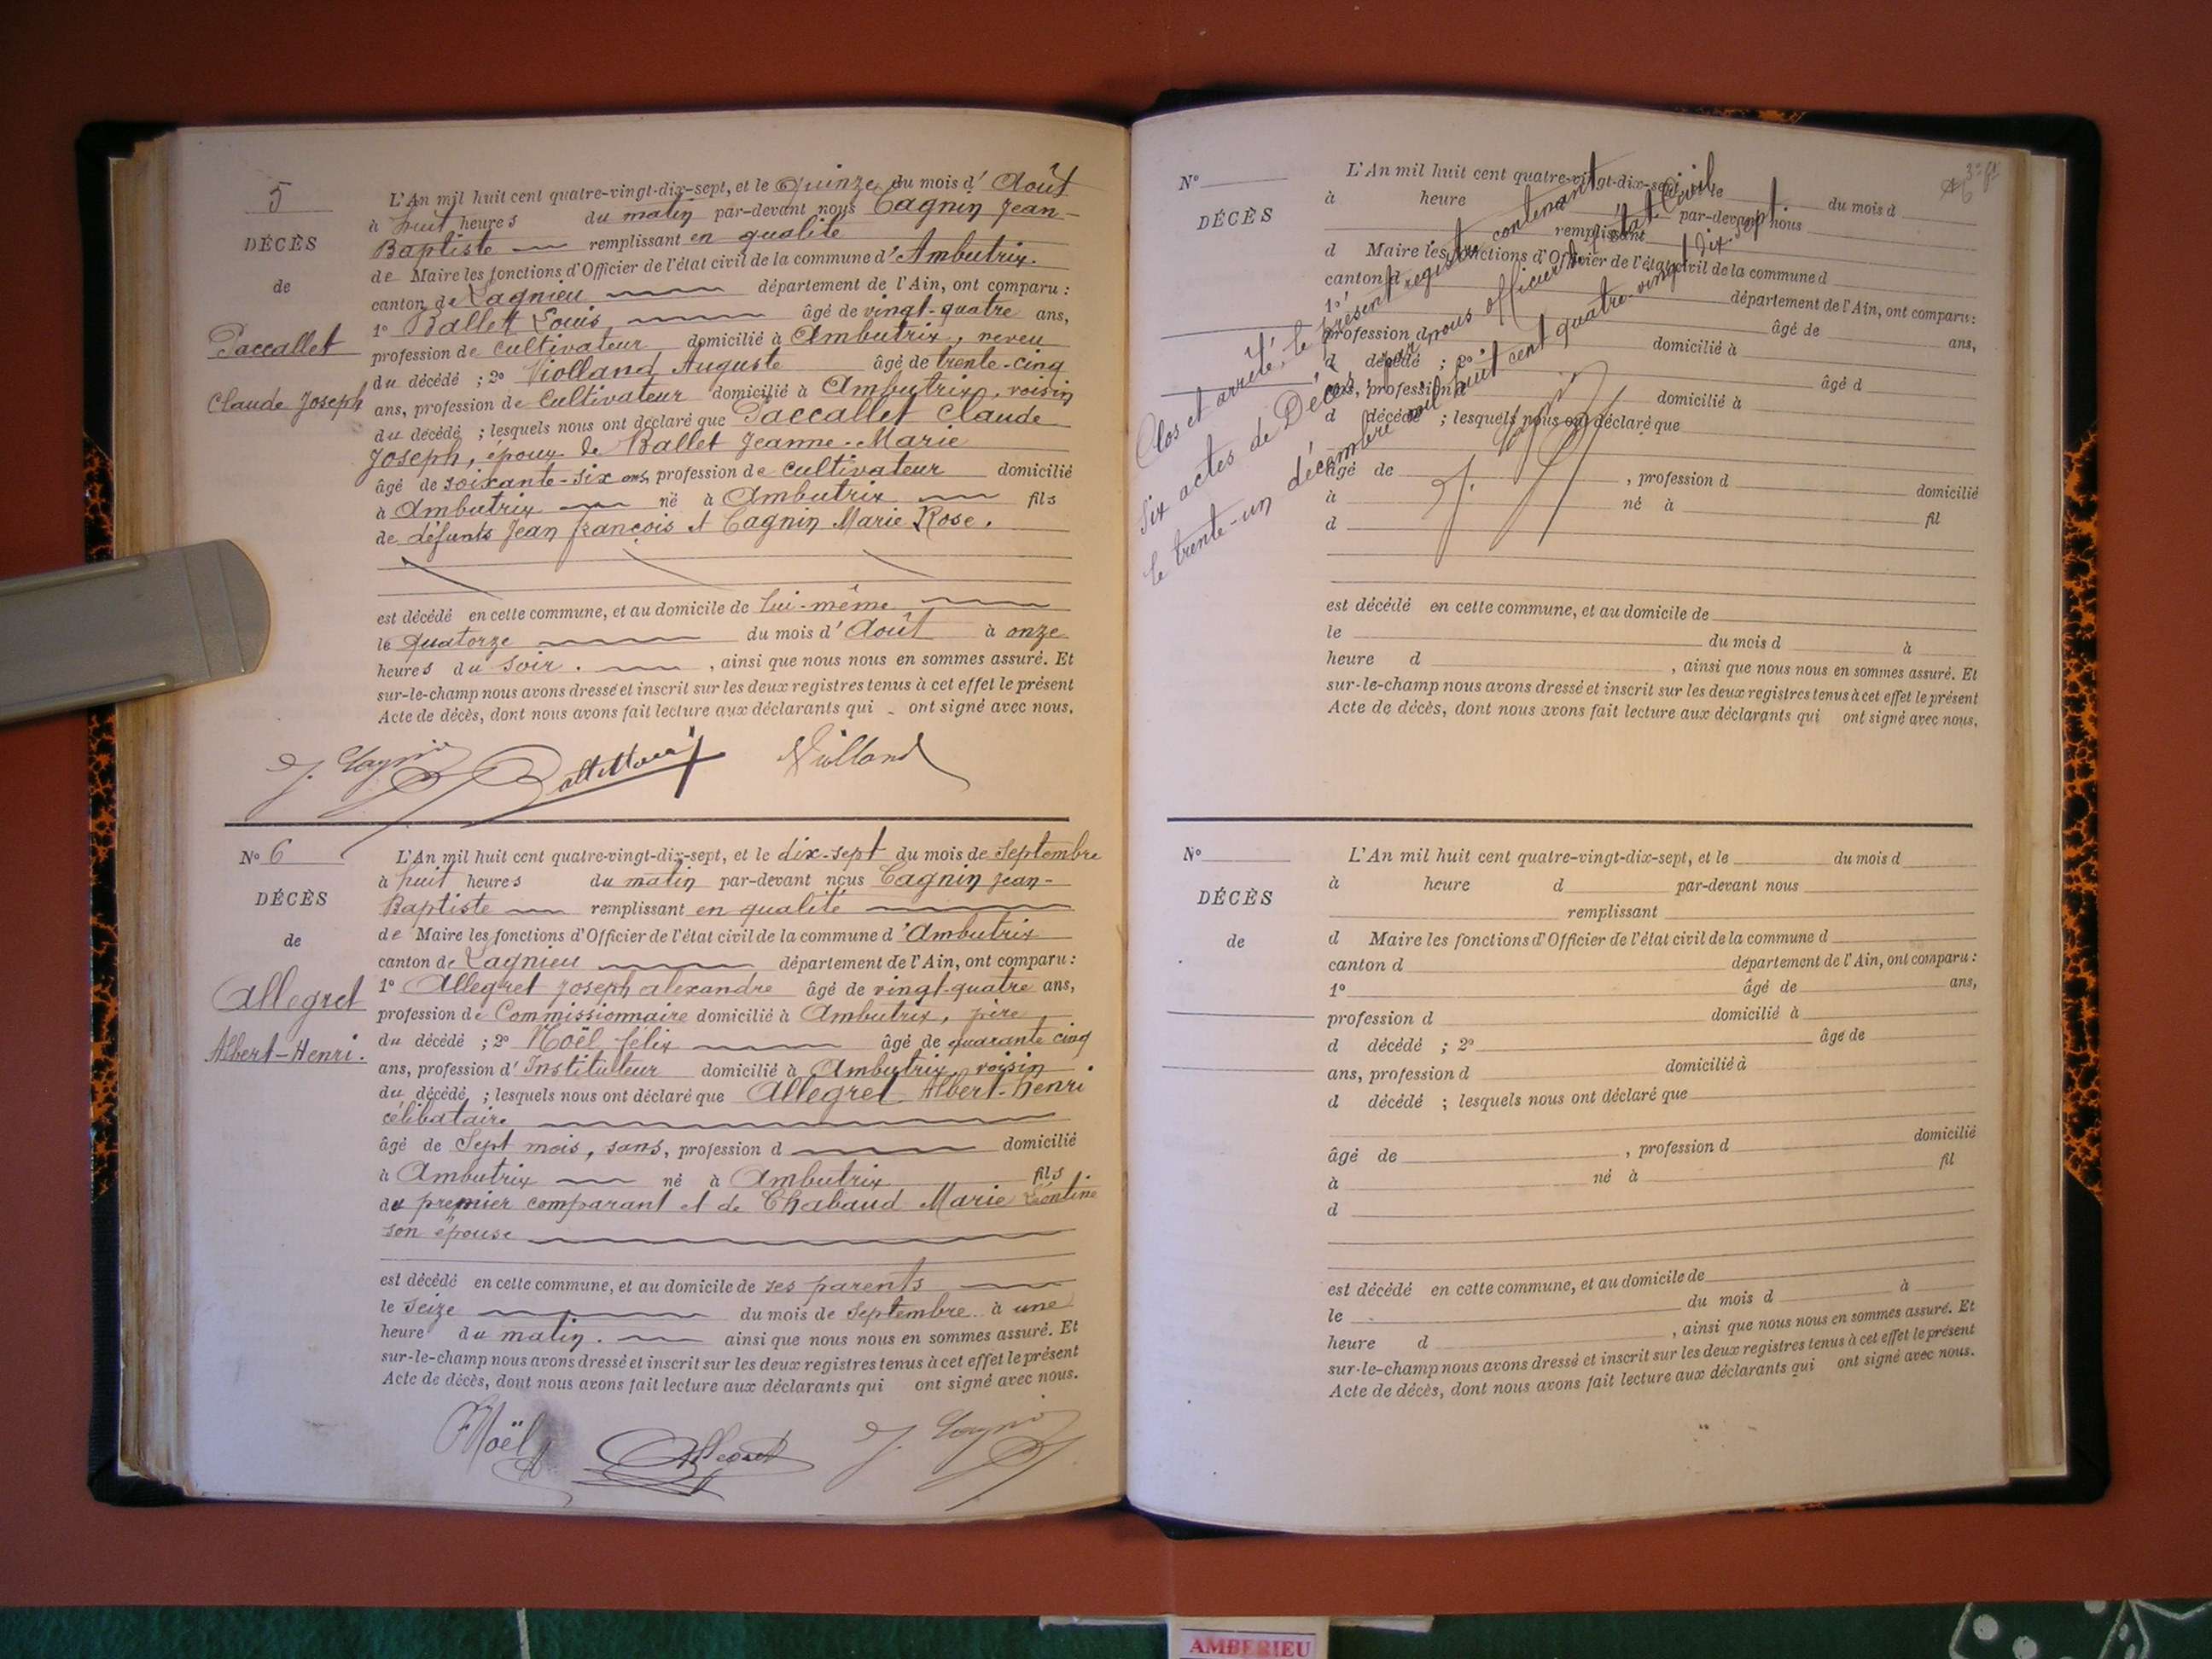 5
DÉCÈS
de
Paccallet
Claude Joseph
L'An mil huit cent quatre-vingt-dix-sept, et le Quinze du mois d' Août
à huit heures du matin par-devant nous Cagnin Jean-
Baptiste remplissant en qualité
de Maire les fonctions d'Officier de l'état civil de la commune d' Ambutrix.
canton de Lagnieu département de l'Ain, ont comparu :
1° Ballet Louis âgé de vingt-quatre ans,
profession de cultivateur domicilié à Ambutrix, neveu
du décédé ; 2° Violland Auguste âgé de trente-cinq
ans, profession de Cultivateur domicilié à Ambutrix, voisin
du décédé ; lesquels nous ont déclaré que Paccallet Claude
Joseph, époux de Ballet Jeanne-Marie
âgé de soixante-six ans, profession de cultivateur domicilié
à Ambutrix né à Ambutrix fils
de défunts Jean françois et Cagnin Marie Rose.
est décédé en cette commune, et au domicile de lui-même
le quatorze du mois d' Août à onze
heures du soir. , ainsi que nous nous en sommes assuré. Et
sur-le-champ nous avons dressé et inscrit sur les deux registres tenus à cet effet le présent
Acte de décès, dont nous avons fait lecture aux déclarants qui ont signé avec nous.
J. Cagnin Ballet Louis Violland
N° 6
DÉCÈS
de
Allegret
Albert-Henri.
L'An mil huit cent quatre-vingt-dix-sept, et le dix-sept du mois de Septembre
à huit heures du matin par-devant nous Cagnin Jean-
Baptiste remplissant en qualité
de Maire les fonctions d'Officier de l'état civil de la commune d' Ambutrix
canton de Lagnieu département de l'Ain, ont comparu :
1° Allegret Joseph alexandre âgé de vingt-quatre ans,
profession de Commissionnaire domicilié à Ambutrix, père
du décédé ; 2° Noël félix âgé de quarante cinq
ans, profession d' Instituteur domicilié à Ambutrix, voisin
du décédé ; lesquels nous ont déclaré que Allegret Albert-henri
célibataire
âgé de Sept mois, sans, profession d domicilié
à Ambutrix né à Ambutrix fils
du premier comparant et de Chabaud Marie Léontine
son épouse
est décédé en cette commune, et au domicile de ses parents
le seize du mois de Septembre à une
heure du matin. ainsi que nous nous en sommes assuré. Et
sur-le-champ nous avons dressé et inscrit sur les deux registres tenus à cet effet le présent
Acte de décès, dont nous avons fait lecture aux déclarants qui ont signé avec nous.
FNoël Allegret J. Cagnin
N°
DÉCÈS
L'An mil huit cent quatre-vingt-dix-sept, et le du mois d
à heure par-devant nous
remplissant
d Maire les fonctions d'Officier de l'état civil de la commune d
canton d département de l'Ain, ont comparu :
1° âgé de ans,
profession d domicilié à
d décédé ; 2° âgé d
ans, profession d domicilié à
d décédé ; lesquels nous ont déclaré que
âgé de , profession d domicilié
à né à fil
d
Clos et arrêté, le présent registre contenant
Six actes de Décès, par nous officier de l'état Civil
le trente-un décembre mil huit cent quatre-vingt dix-sept.
J. Cagnin
est décédé en cette commune, et au domicile de
le du mois d à
heure d , ainsi que nous nous en sommes assuré. Et
sur-le-champ nous avons dressé et inscrit sur les deux registres tenus à cet effet le présent
Acte de décès, dont nous avons fait lecture aux déclarants qui ont signé avec nous.
N°
DÉCÈS
de
L'An mil huit cent quatre-vingt-dix-sept, et le du mois d
à heure d par-devant nous
remplissant
d Maire les fonctions d'Officier de l'état civil de la commune d
canton d département de l'Ain, ont comparu :
1° âgé de ans,
profession d domicilié à
d décédé ; 2° âge de
ans, profession d domicilié à
d décédé ; lesquels nous ont déclaré que
âgé de , profession d domicilié
à né à fil
d
est décédé en cette commune, et au domicile de
le du mois d à
heure d , ainsi que nous nous en sommes assuré. Et
sur-le-champ nous avons dressé et inscrit sur les deux registres tenus à cet effet le présent
Acte de décès, dont nous avons fait lecture aux déclarants qui ont signé avec nous.
AMBERIEU